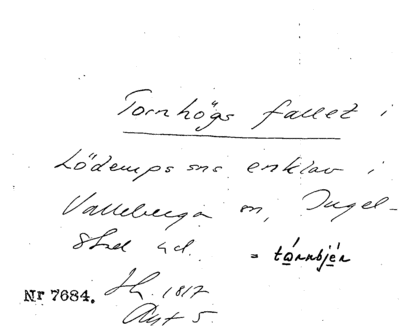 Tornhögs fallet i
Lödemps sns enklav i
Valleberga sn, Ingel-
stad hd.
= tórnbjér
Nr 7684.
1817
Akt 5.